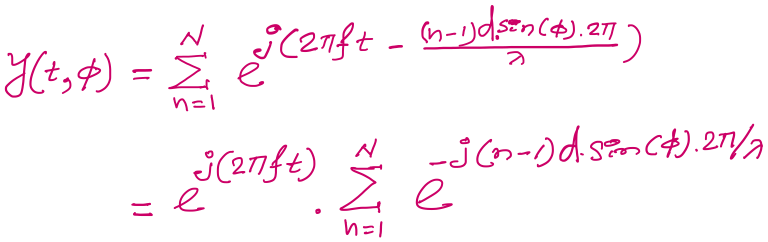 y(t,φ) = Σ_{n=1}^{N} e^{j(2πft - \frac{(n-1)d.sin(φ).2π}{λ})}
= e^{j(2πft)} . Σ_{n=1}^{N} e^{-j(n-1)d.sin(φ).2π/λ}